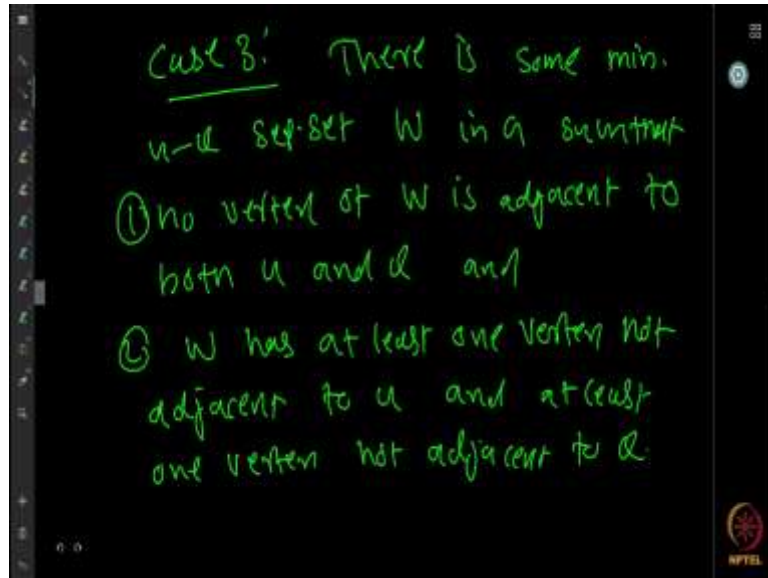 Case 3: There is some min.
u-v sep.set W in G such that
① no vertex of W is adjacent to
both u and v and
② W has at least one vertex not
adjacent to u and at least
one vertex not adjacent to v.
NPTEL